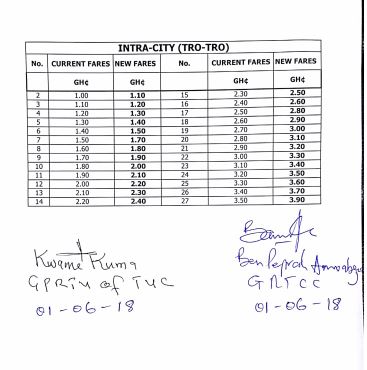 INTRA-CITY (TRO-TRO)
No. CURRENT FARES NEW FARES No. CURRENT FARES NEW FARES
GH¢ GH¢ GH¢ GH¢
2 1.00 1.10 15 2.30 2.50
3 1.10 1.20 16 2.40 2.60
4 1.20 1.30 17 2.50 2.80
5 1.30 1.40 18 2.60 2.90
6 1.40 1.50 19 2.70 3.00
7 1.50 1.70 20 2.80 3.10
8 1.60 1.80 21 2.90 3.20
9 1.70 1.90 22 3.00 3.30
10 1.80 2.00 23 3.10 3.40
11 1.90 2.10 24 3.20 3.50
12 2.00 2.20 25 3.30 3.60
13 2.10 2.30 26 3.40 3.70
14 2.20 2.40 27 3.50 3.90
Kwame Kuma
GPRTU of TUC
01-06-18
Ben Peprah
GRTCC
01-06-18